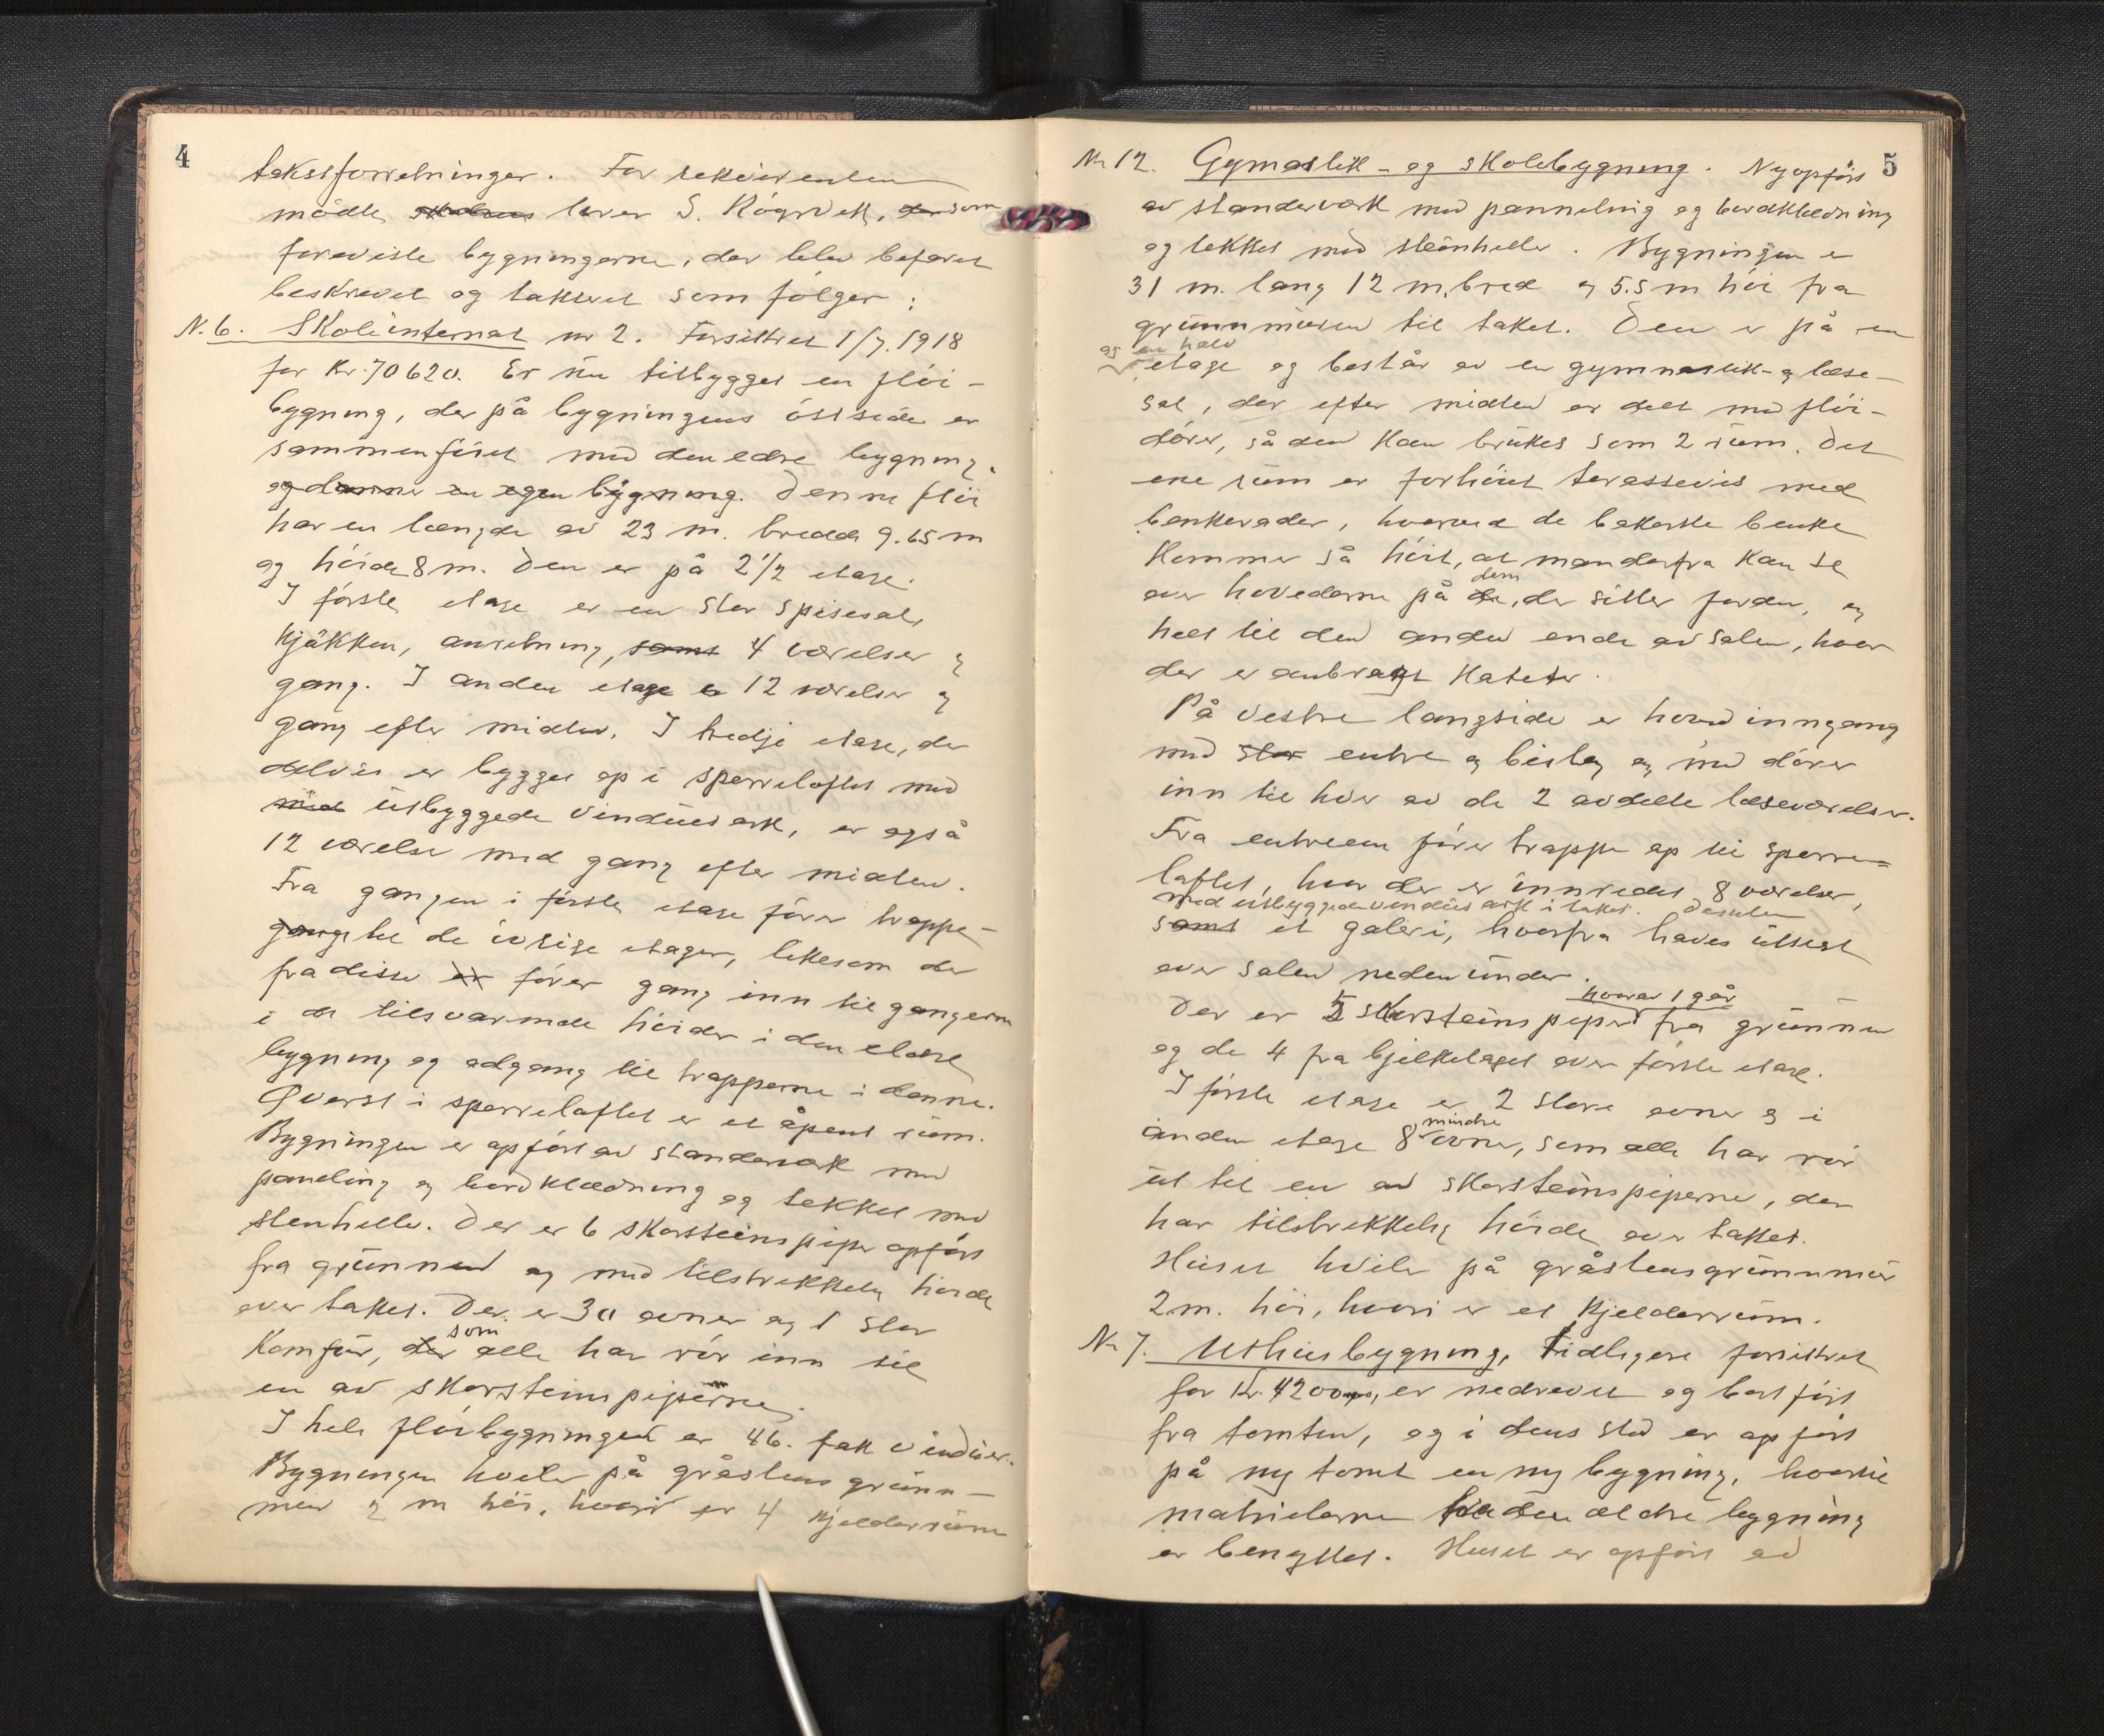 4
takstforretninger. For rekvirenten
mödte skolens lærer S. Rögrvik, der som
foreviste bygningerne, der blev befaret
beskrevet og takseret som fölger:
N. 6. Skoleinternat nr 2. Forsikret 1/7.1918
for Kr. 70620. Er nu tilbygget en flöi-
bygning, der på bygningens östside er
sammenföiet med den eldre bygning.
og danner en egen bygning. Denne flöi
har en længde av 23 m. bredde 9.65 m
og höide 8 m. Den er på 2 1/2 etage.
I förste etage er en stor spisesal,
kjökken, anretning, samt 4 værelser og
gang. I anden etage er 12 værelser og
gang efter midten. I tredje etage, der
delvis er bygget op i sperreloftet med
med utbyggede vindues ark, er også
12 værelser med gang efter midten.
Fra gangen i förste etage förer trappe-
gang til de övrige etager, likesom der
fra disse er förer gang inn til gangerne
i de tilsvarende höider i den eldre
bygning og adgang til trapperne i denne.
Øverst i sperreloftet er et åpent rum.
Bygningen er opfört av standerverk med
paneling og bordklædning og tekket med
stenheller. Der er 6 skorsteinspiper opfört
fra grunnen og med tilstrekkelig höide
over taket. Der er 30 ovner og 1 stor
Komfur, der som alle har rör inn til
en av skorsteinspiperne.
I hele flöibygningen er 46 fak vinduer.
Bygningen hviler på gråstens grunn-
mur 2 m höi, hvori er 4 kjelderrum
5
Nr 12. Gymastik- og skolebygning. Ny opfört
av standerverk med pannelning og bordklædning
og tekket med steinheller. Bygningen er
31 m. lang 12 m. bred og 5.5 m höi fra
grunnmuren til taket. Den er på en
og en halv
etage og består av en gymnastik- og læse-
sal, der efter midten er delt med flöi-
dörer, så den kan brukes som 2 rum. Det
ene rum er forhöiet terassevis med
benkerader, hvorved de bakerste benke
kommer så höit, at man derfra kan se
over hovederne på de, dem der sitter foran, og
helt til den anden ende av salen, hvor
der er anbragt Kateter.
På vestre langside er hovedinngang
med stor entre og bislag og med dörer
inn til hver av de 2 avdelte læseværelser.
Fra entreen förer trappe op til sperre-
loftet, hvor der er innredet 8 værelser,
med utbyggede vindus ark i taket. Desuten
samt et galeri, hvorfra haves utsigt
over salen nedenunder.
Der er 5 skorsteinspiper hvorav 1 går fra grunnen
og de 4 fra bjelkelaget over förste etage.
I förste etage er 2 store ovner og i
anden etage 8 mindre ovner, som alle har rör
ut til en av skorsteinspiperne, der
har tilstrekkelig höide over taket.
Huset hviler på gråstensgrunnmur
2 m. höi, hvori er et kjelderrum.
Nr 7. Uthusbygning, tidligere forsikret
for Kr. 4200, er nedrevet og bortfört
fra tomten, og i dens sted er opfört
på ny tomt en ny bygning, hvortil
matrielerne fra den ældre bygning
er benyttet. Huset er opfört av